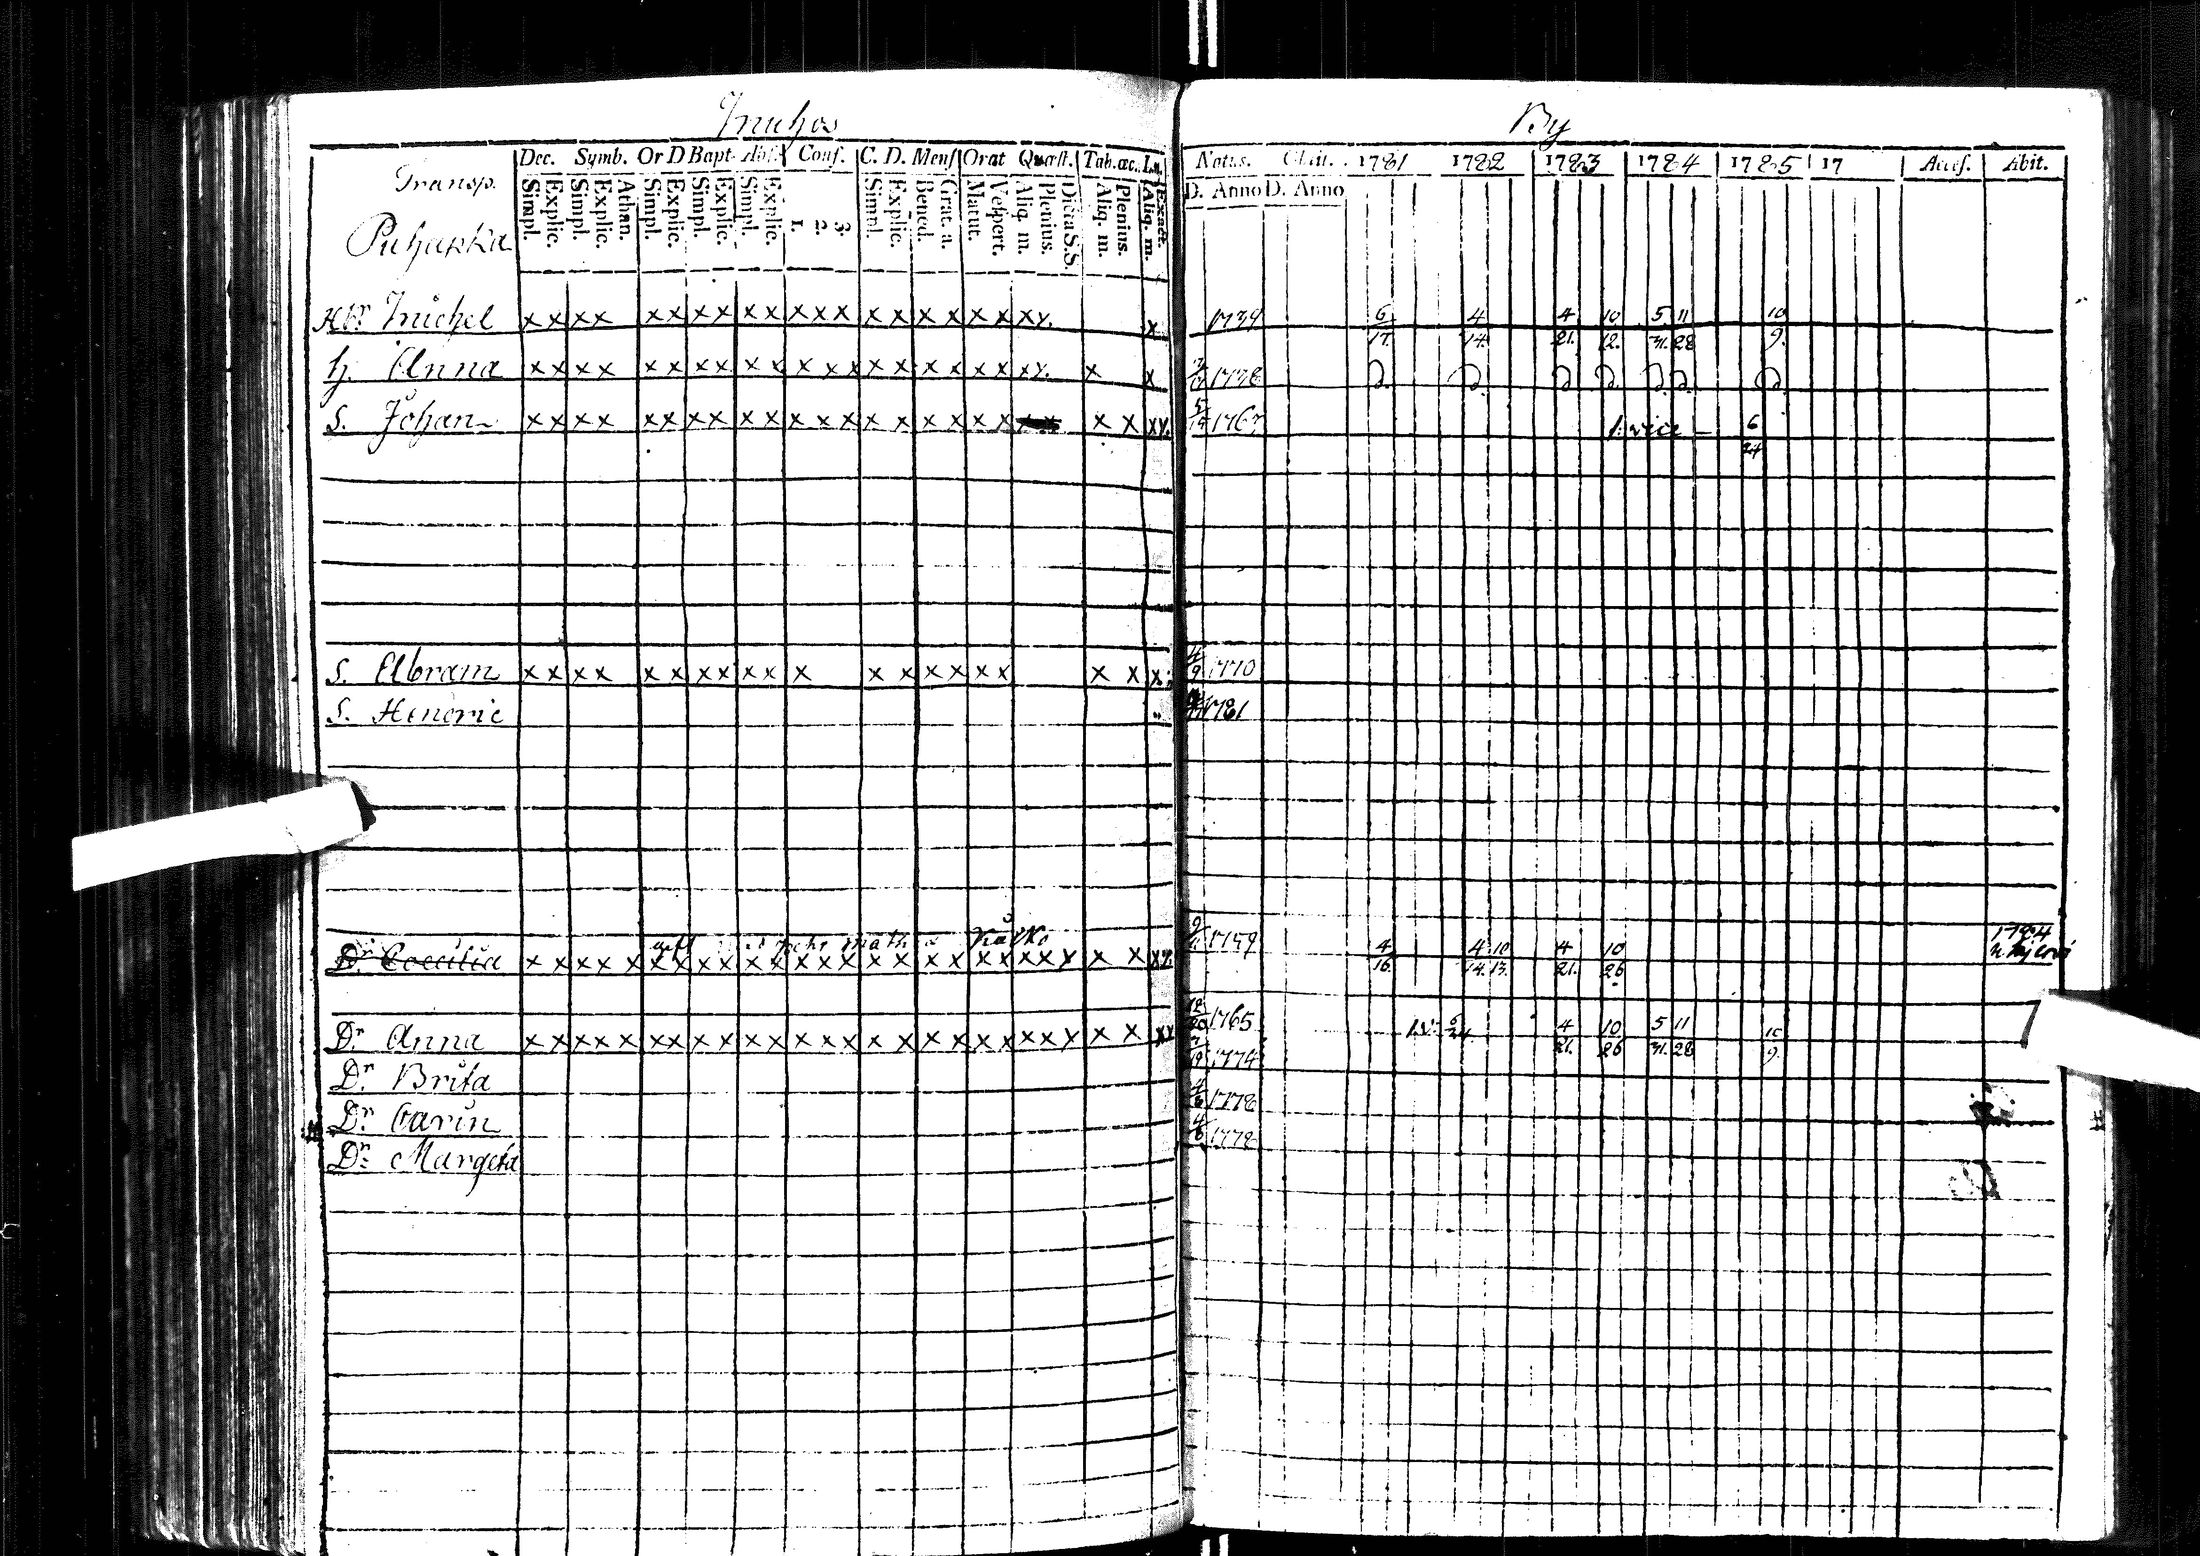 By
Dec. Symb. Or D Bapt. Abs. Conf. C. D. Mens Orat Quæst. Tab. œc. Lu.
Transp.
Simpl. Explic. Simpl. Explic. Athan. Simpl. Explic. Simpl. Explic. Simpl. Explic. 1. 2. 3. Simpl. Explic. Bened. Grat. a. Matut. Vespert. Aliq. m. Plenius. Dicta S.S. Aliq. m. Plenius. Aliq. m. Exact.
Natus. Obiit. 1781 1782 1783 1784 1785 17 Acces. Abit.
D. Anno D. Anno
Michel x x x x x x x x x x x x x x x x x x x x x x 1739 6/17. 4/14. 4/21. 10/12. 5/31. 11/28 10/9.
h. Anna x x x x x x x x x x x x x x x x x x x x x x x 1738
S. Johan x x x x x x x x x x x x x x x x x x x x x x x 1767 1. vice — 6/24
S. Abram x x x x x x x x x x x x x x x x x x x 4/9 1770
S. Hendric 1781
Dr. Cecilia x x x x x x x x x x x x x x x x x x x x x x x x x x x 1759 4/16. 4/14. 10/13. 4/21. 10/26 1784
Dr. Anna x x x x x x x x x x x x x x x x x x x x x x x x x x x 12/20 1765 1. v. 6/24 4/21. 10/26 5/31. 11/28 10/9.
Dr. Brita 1774
Dr. Carin 4/6 1778
Dr. Margeta 4/6 1778